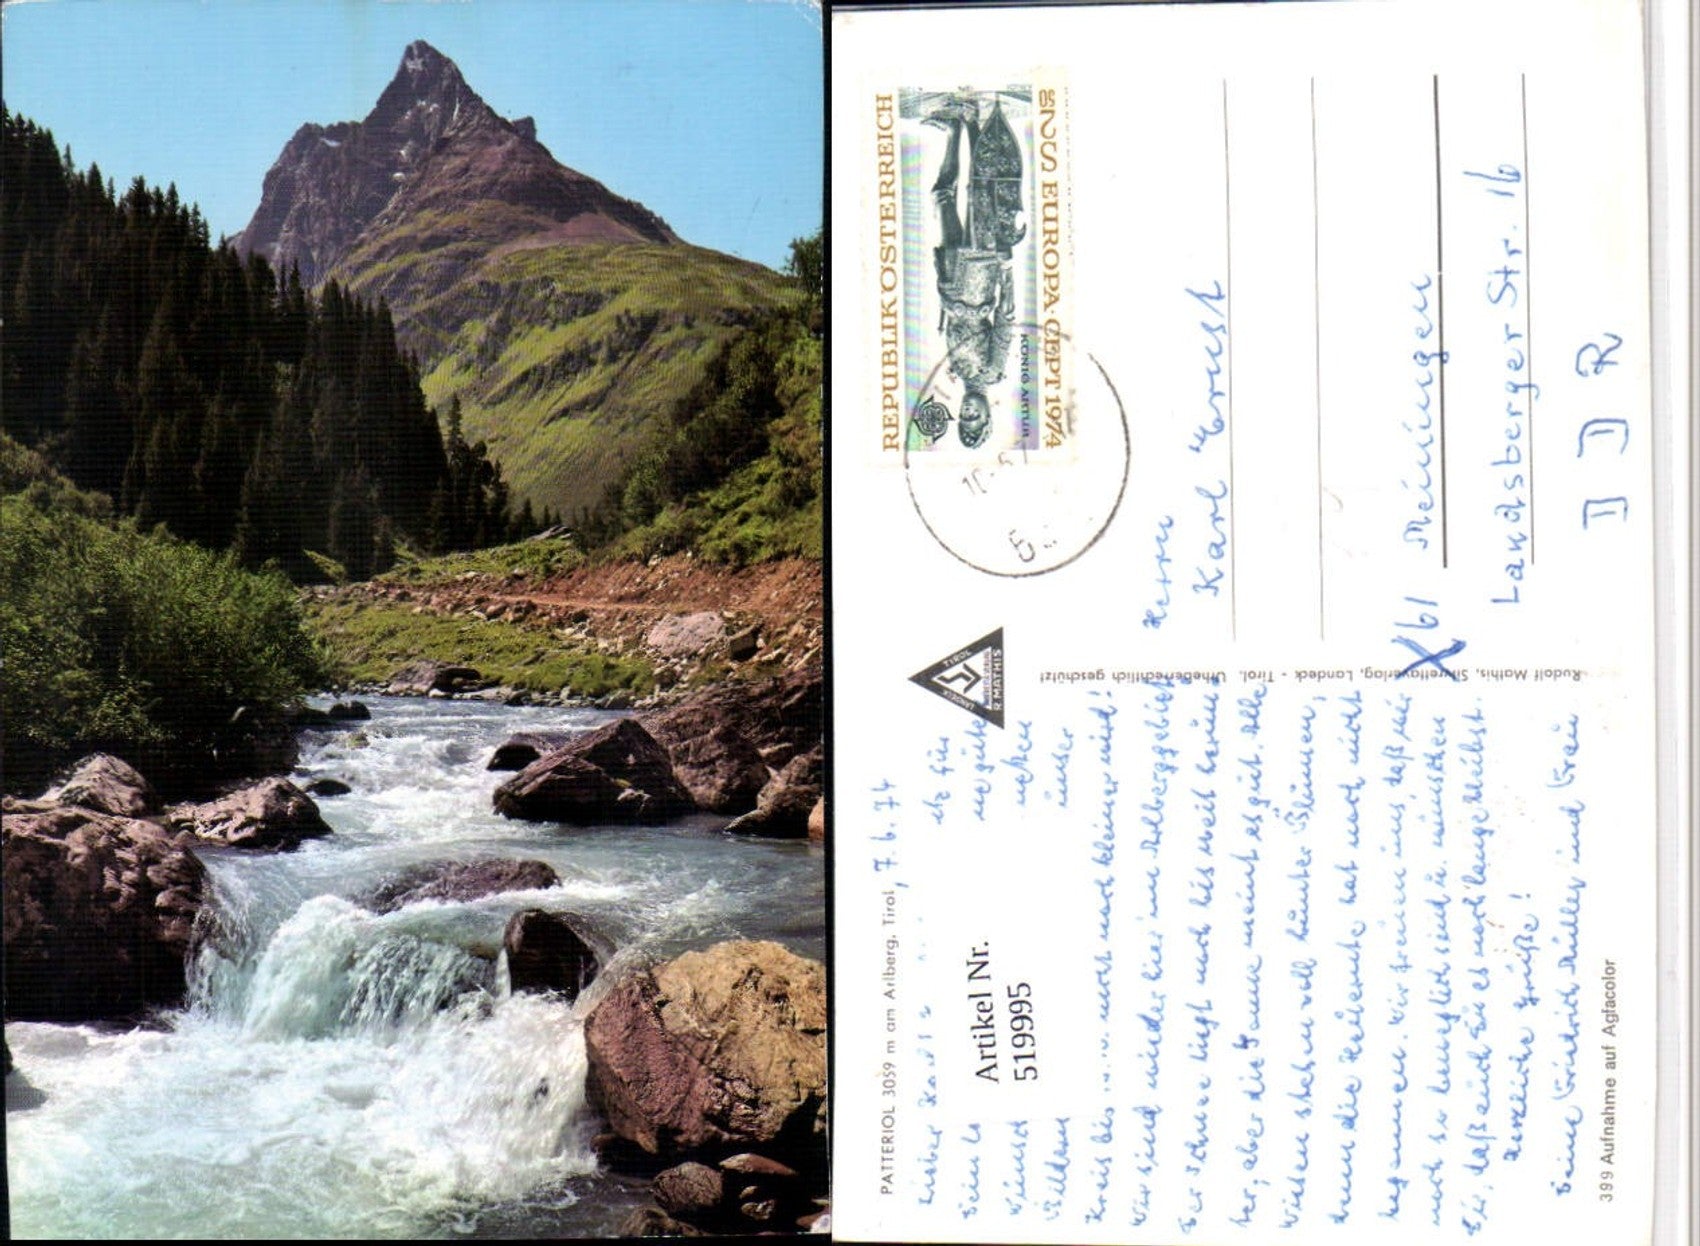 PATTERIOL 3059 m am Arlberg, Tirol, 7. 6. 74
Lieber Karl
Artikel Nr.
519995
Kreis
noch kleiner wird!
Wir sind wieder hier im Arlberggebiet
Der Schnee liegt noch bis weit herunter,
aber die Sonne meint es gut. Alle
Wiesen stehen voll bunter Blumen,
denn die Heuernte hat noch nicht
begonnen. Wir freuen uns, daß wir
noch so beweglich sind u. wünschen
Dir, daß auch Du es noch lange bleibst.
Herzliche Grüße!
Deine Friedrich Müller und Frau
399 Aufnahme auf Agfacolor
Rudolf Mathis, Silvrettaverlag, Landeck - Tirol. Urheberrechtlich geschützt
TIROL
R MATHIS
LANDECK
REPUBLIK ÖSTERREICH
S 2.50 EUROPA·CEPT 1974
KÖNIG ARTUR
Herrn
Karl Ernst
X 61 Meiningen
Landsberger Str. 16
DDR